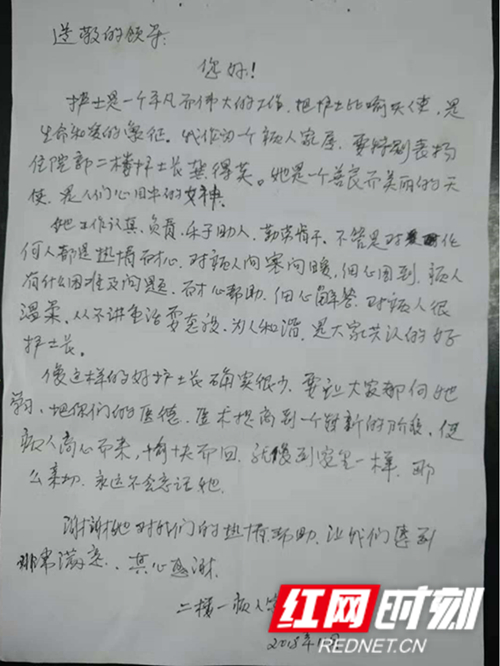 尊敬的领导:
您好!
护士是一个平凡而伟大的工作,把护士比喻天使,是
生命和爱的象征。我作为一个病人家属,要特别表扬
住院部二楼护士长龚得英。她是一个善良而美丽的天
使,是人们心目中的女神。
她工作认真、负责、乐于助人、勤劳肯干,不管是对任
何人都是热情耐心,对病人问寒问暖,细心周到,病人
有什么困难及问题,耐心帮助,细心解答,对病人很
温柔,从不讲生活,为人和谐,是大家共认的好
护士长。
像这样的好护士长确实很少,要让大家都向她
学习,把你们的医德、医术提高到一个新的阶段,使
病人高心而来,愉快而回,就像到家里一样,那
么亲切,永远不会忘记她。
谢谢她对我们的热情帮助,让我们得到
非常满意,真心感谢。
二楼一病人
2018年
红网时刻
REDNET.CN